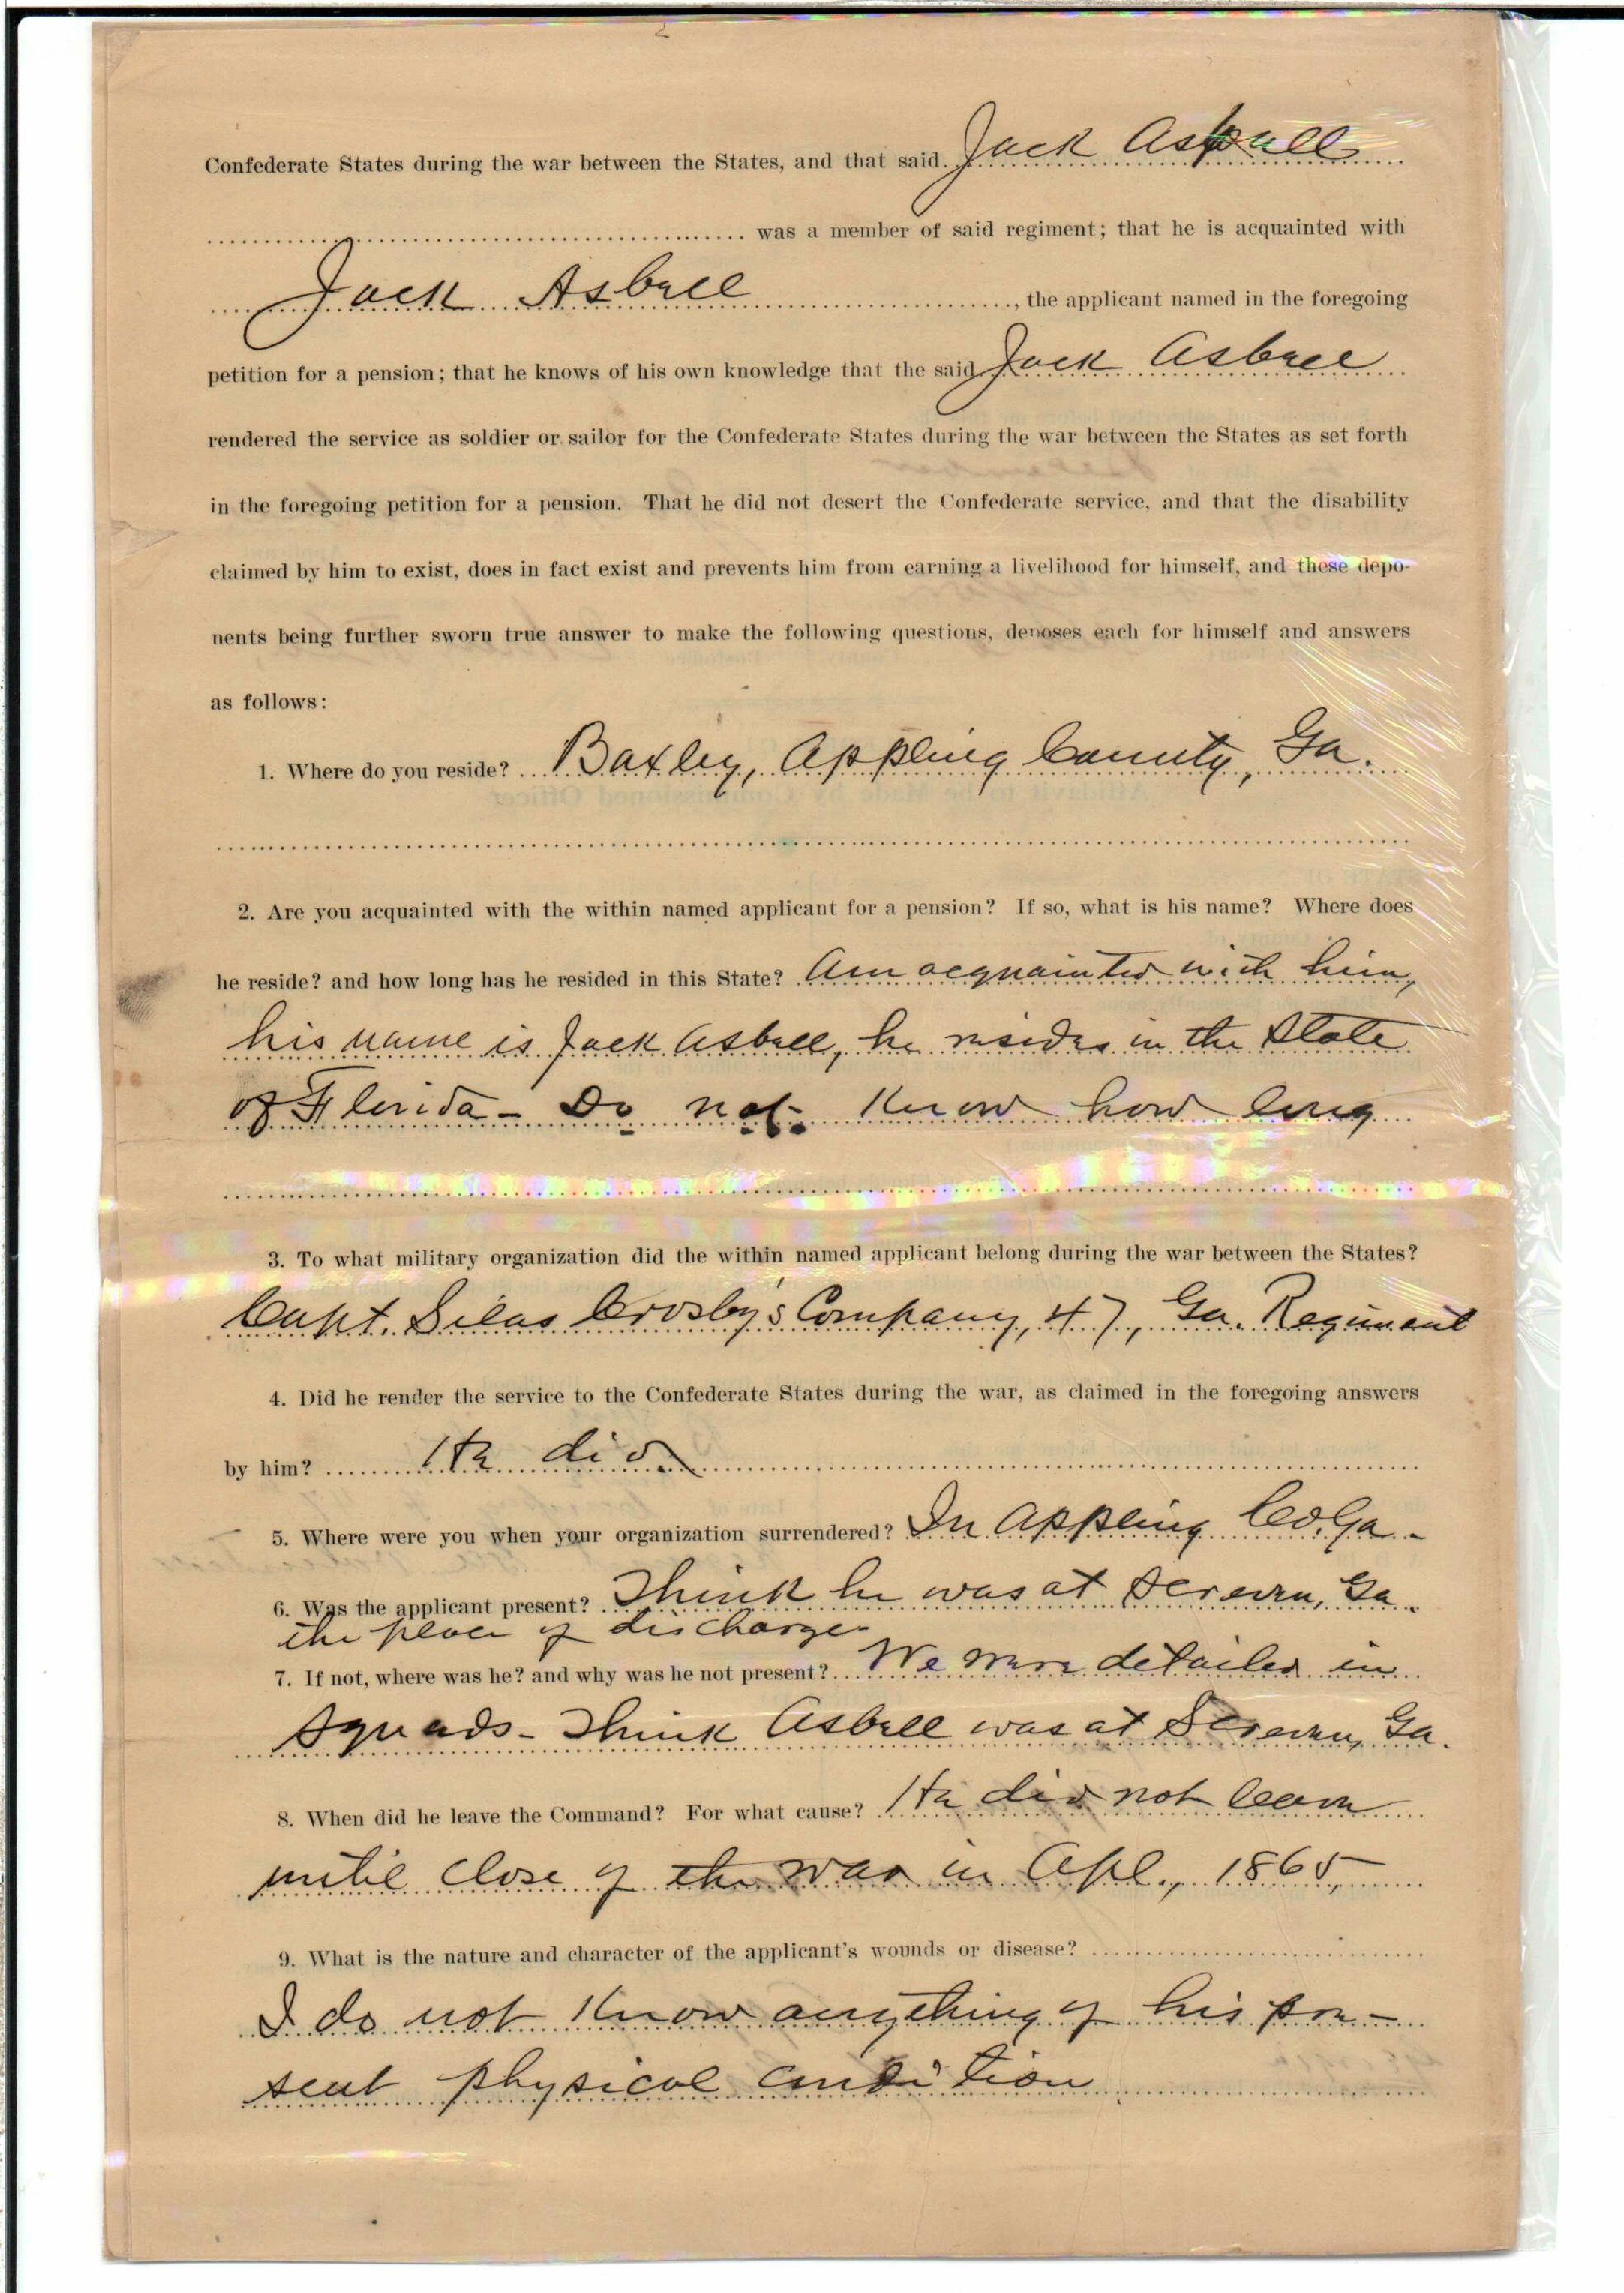 Confederate States during the war between the States, and that said Jack Asbell
was a member of said regiment; that he is acquainted with
Jack Asbell, the applicant named in the foregoing
petition for a pension; that he knows of his own knowledge that the said Jack Asbell
rendered the service as soldier or sailor for the Confederate States during the war between the States as set forth
in the foregoing petition for a pension. That he did not desert the Confederate service, and that the disability
claimed by him to exist, does in fact exist and prevents him from earning a livelihood for himself, and these depo-
nents being further sworn true answer to make the following questions, deposes each for himself and answers
as follows:
1. Where do you reside? Baxley, Appling County, Ga.
2. Are you acquainted with the within named applicant for a pension? If so, what is his name? Where does
he reside? and how long has he resided in this State? Am acquainted with him,
his name is Jack Asbell, he resides in the State
of Florida - Do not know how long
3. To what military organization did the within named applicant belong during the war between the States?
Capt. Silas Crosby's Company, 47, Ga. Regiment
4. Did he render the service to the Confederate States during the war, as claimed in the foregoing answers
by him? He did
5. Where were you when your organization surrendered? In Appling Co. Ga.
6. Was the applicant present? Think he was at Screven, Ga.
the place of discharge
7. If not, where was he? and why was he not present? We were detailed in
squads - Think Asbell was at Screven, Ga.
8. When did he leave the Command? For what cause? He did not leave
until close of the war in Apl., 1865,
9. What is the nature and character of the applicant's wounds or disease?
I do not know anything of his pre-
sent physical condition